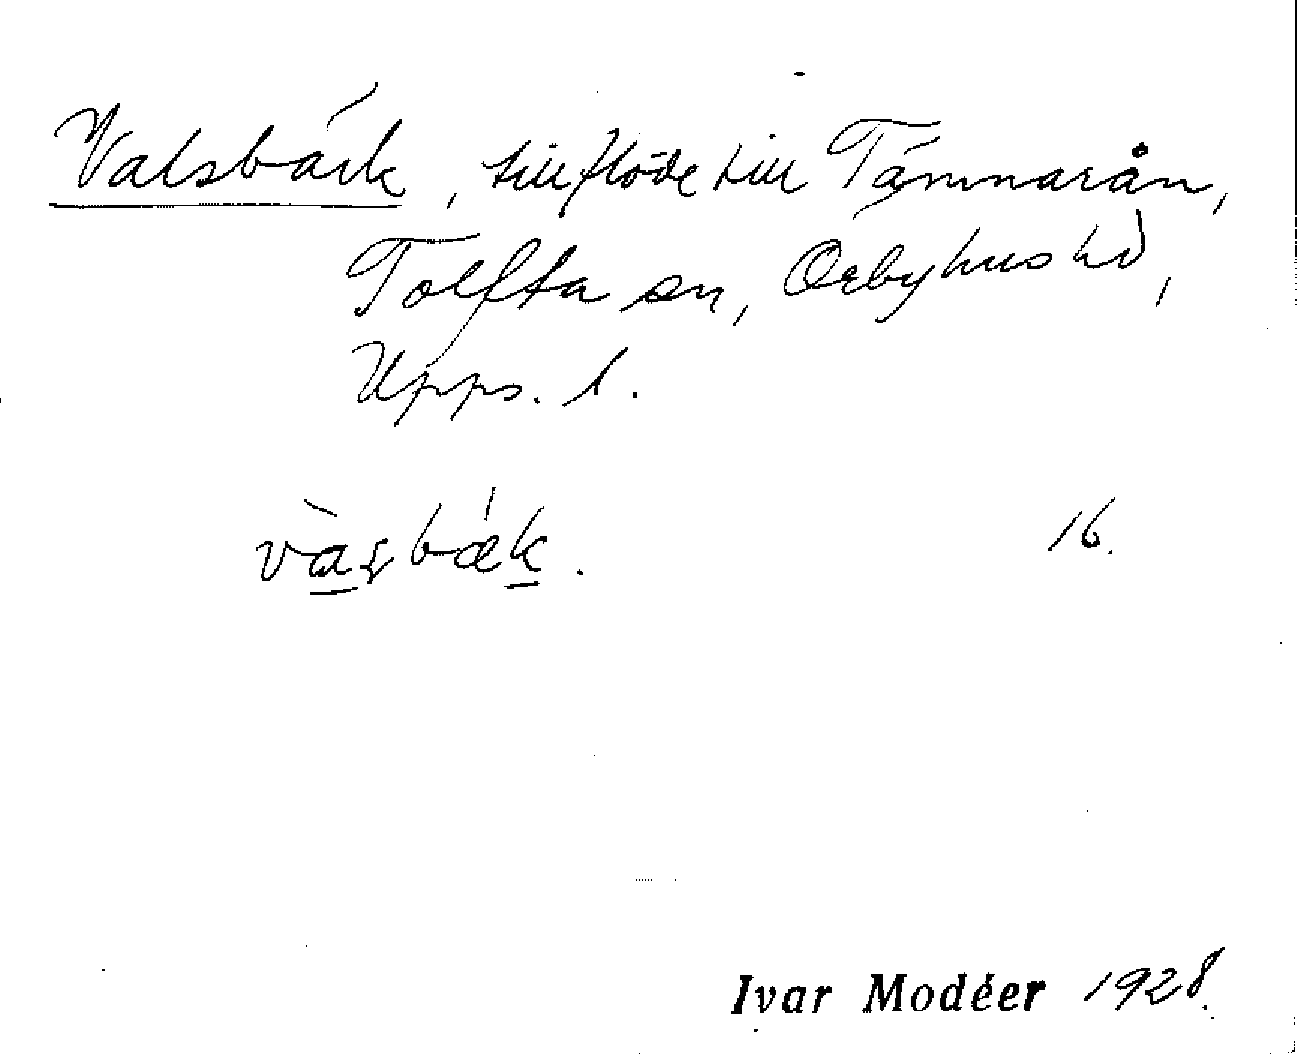 Valsbäck, tillflöde till Tämnarån,
Tolfta sn, Örbyhus hd,
Upps. l.
vàʂbǽk. 16.
Ivar Modéer 1928.